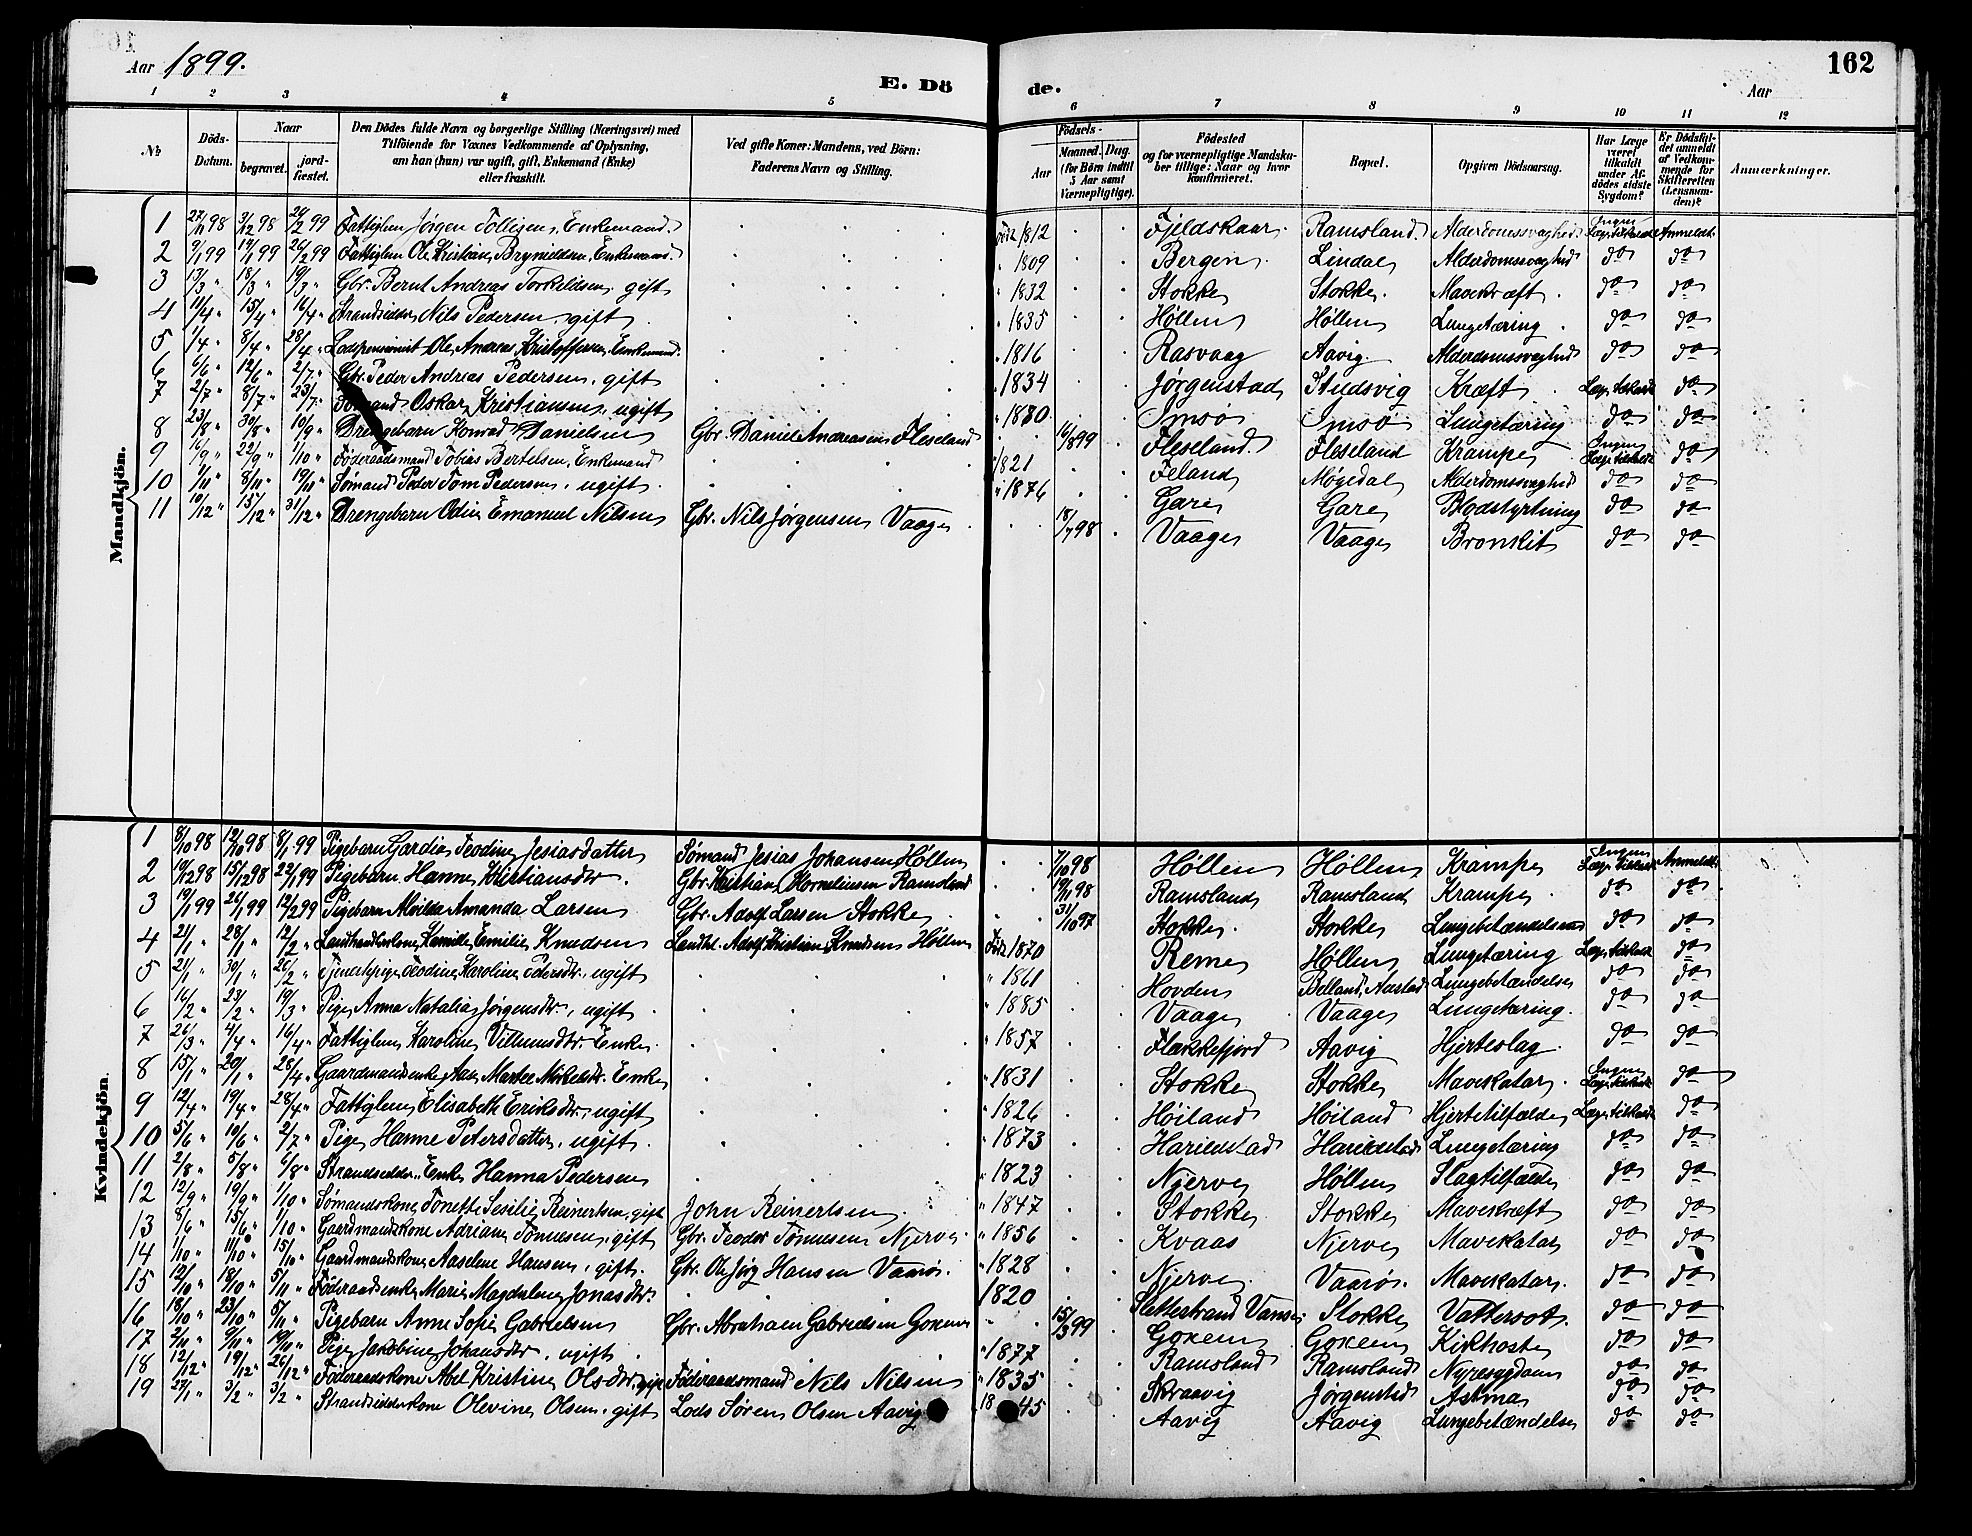 Aar 1899.
E. Dö de.
Aar
162
1 2 3 4 5 6 7 8 9 10 11 12
№
Döds-Datum.
Naar
begravet.
jord-fæstet.
Den Dödes fulde Navn og borgerlige Stilling (Næringsvei) med Tilföiende for Voxnes Vedkommende af Oplysning, om han (hun) var ugift, gift, Enkemand (Enke) eller fraskilt.
Ved gifte Koner: Mandens, ved Börn: Faderens Navn og Stilling.
Födsels-
Aar
Maaned. Dag.
(for Börn indtil 5 Aar samt Værnepligtige).
Födested og for værnepligtige Mandskaber tillige: Naar og hvor konfirmeret.
Bopæl.
Opgiven Dödsaarsag.
Har Læge været tilkaldt under Afdödes sidste Sygdom?
Er Dödsfaldet anmeldt af Vedkommende for Skifteretten (Lensmanden)?
Anmærkninger.
Mandkjön.
1 27/11 98 3/12 98 26/2 99 Fattiglem Jørgen Tolligsen, Enkemand. Født 1812 Fjeldskaar. Ramsland. Alderdomssvaghed Ingen Læge tilkaldt Anmeldt.
2 9/1 99 14/1 99 26/2 99 Fattiglem Ole Kristian Brynildsen, Enkemand. " 1809 Bergen Lindal Alderdomssvaghed do do
3 13/3 " 18/3 " 19/3 " Gbr. Bernt Andreas Torkildsen, gift " 1832 Stokke Stokke. Mavekræft. do do
4 11/4 " 15/4 " 16/4 " Strandsidder Nils Pedersen, gift " 1835 Høllen Høllen Lungetæring do do
5 1/4 " 8/4 " 28/4 " Lodspensionist Ole Andreas Kristoffersen, Enkemand. " 1816 Rasvaag Aavig. Alderdomssvaghed do do
6 6/6 " 12/6 " 2/7 " Gbr. Peder Andreas Pedersen, gift " 1834 Jørgenstad Studsvig Kræft. Læge tilkaldt do
7 2/7 " 8/7 " 23/7 " Sømand Oskar Kristiansen, ugift " 1880 Imsø Imsø Lungetæring do do
8 23/8 " 30/8 " 10/9 " Drengebarn Konrad Danielsen Gbr. Daniel Andreasen Fleseland 14/8 99 Fleseland. Fleseland Krampe Ingen Læge tilkaldt do
9 16/9 " 22/9 " 1/10 " Føderaadsmand Tobias Bertelsen, Enkemand 1821 Feland Møgedal Alderdomssvaghed do do
10 1/11 " 8/11 " 19/11 " Sømand Peder Tom Pedersen, ugift. " 1876 Gare Gare Blodstyrtning do do
11 10/12 " 15/12 " 31/12 " Drengebarn Odin Emanuel Nilsen Gbr. Nils Jørgensen Vaage 18/7 98 Vaage Vaage Bronkit do do
Kvindekjön.
1 8/10 98 12/10 98 8/1 99 Pigebarn Gardia Teodine Jesiasdatter Sømand Jesias Johansen Høllen 7/10 98 Høllen Høllen Krampe Ingen Læge tilkaldt Anmeldt.
2 10/12 98 15/12 98 22/1 99 Pigebarn Hanne Kristiansdtr. Gbr. Kristian Korneliusen Ramsland 19/11 98 Ramsland Ramsland Krampe. do do
3 19/1 99 26/1 99 12/2 99 Pigebarn Alvilda Amanda Larsen Gbr. Adolf Larsen Stokke 31/10 97 Stokke. Stokke Lungebetændelse do do
4 21/1 " 28/1 " 12/2 " Landhandlerkone Kamilla Emilie Knudsen Landhl. Adolf Kristian Knudsen Høllen Født 1870 Reme Høllen Lungetæring Læge tilkaldt do
5 21/1 " 30/1 " 26/2 " Tjenestepige Teodine Karoline Pedersdtr., ugift " 1861 Hovden Belland, Aurstad Lungebetændelse do do
6 16/2 " 23/2 " 19/3 " Pige Anna Natalia Jørgensdtr., ugift " 1885 Vaage Vaage Lungetæring. do do
7 26/3 " 4/4 " 16/4 " Fattiglem Karoline Villumsdtr. Enke. " 1857 Flækkefjord Aavig Hjerteslag. do do
8 15/1 " 20/1 " 28/4 " Gaardmandsenke Aase Martee Mikelsdtr. Enke " 1831 Stokke Stokke Mavekatar. Ingen Læge tilkaldt do
9 12/4 " 19/4 " 28/4 " Fattiglem Elisabeth Eriksdtr., ugift " 1826 Høiland Høiland Hjertetilfælde Læge tilkaldt do
10 5/6 " 10/6 " 2/7 " Pige Hanne Petersdatter, ugift. " 1873 Harilstad Harildstad Lungetæring do do
11 2/8 " 5/8 " 6/8 " Strandsidder.. Enke Hanna Pedersen " 1823 Njerve Høllen Slagtilfælde do do
12 12/9 " 19/9 " 1/10 " Sømandskone Tonette Sesilie Reinertsen, gift John Reinertsen. " 1847 Stokke Stokke Mavekræft do do
13 8/6 " 15/6 " 1/10 " Gaardmandskone Adriane Tønnesen, gift Gbr. Teodor Tønnesen Njerve. " 1856 Kvaas Njerve Mavekatar do do
14 1/10 " 11/10 " 15/10 " Gaardmandskone Aaselene Hansen, gift. Gbr. Ole Jørg Hansen Vaarø. " 1828 Njerve. Vaarø. Mavekatar. do do
15 12/10 " 18/10 " 5/11 " Føderaadsenke Marie Magdalene Jonasdtr. 1820 Slettestrand Vanse. Stokke Vattersot. do do
16 18/10 " 23/10 " 5/11 " Pigebarn Anne Sofie Gabrielsen Gbr. Abraham Gabrielsen Goxem 15/3 99 Goxem Goxem Kikhoste do do
17 2/11 " 9/11 " 19/11 " Pige Jakobine Johansdtr., ugift. " 1877 Ramsland Ramsland Nyresygdom do do
18 12/12 " 19/12 " 26/12 " Føderaadskone Abel Kristine Olsdtr, gift Føderaadsmand Nils Nilsen " 1835 Skraavig Jørgenstad Astma do do
19 27/1 " 3/2 " 3/2 " Strandsidderkone Olevine Olsen, gift Lods Søren Olsen Aavig 1845 Aavig Aavig Lungebetændelse do do